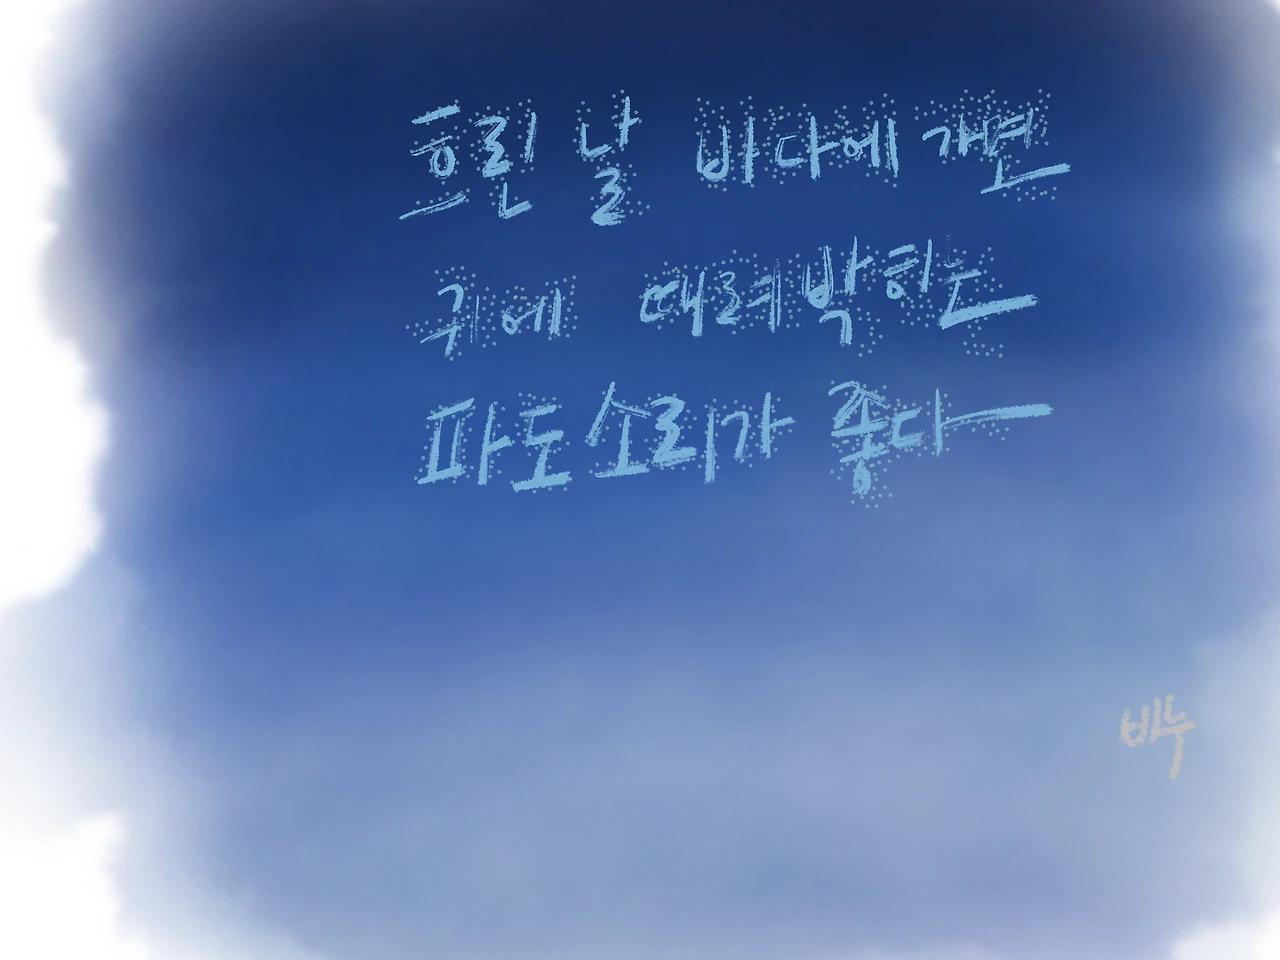 흐린 날 바다에 가면
귀에 때려박히는
파도소리가 좋다
비누